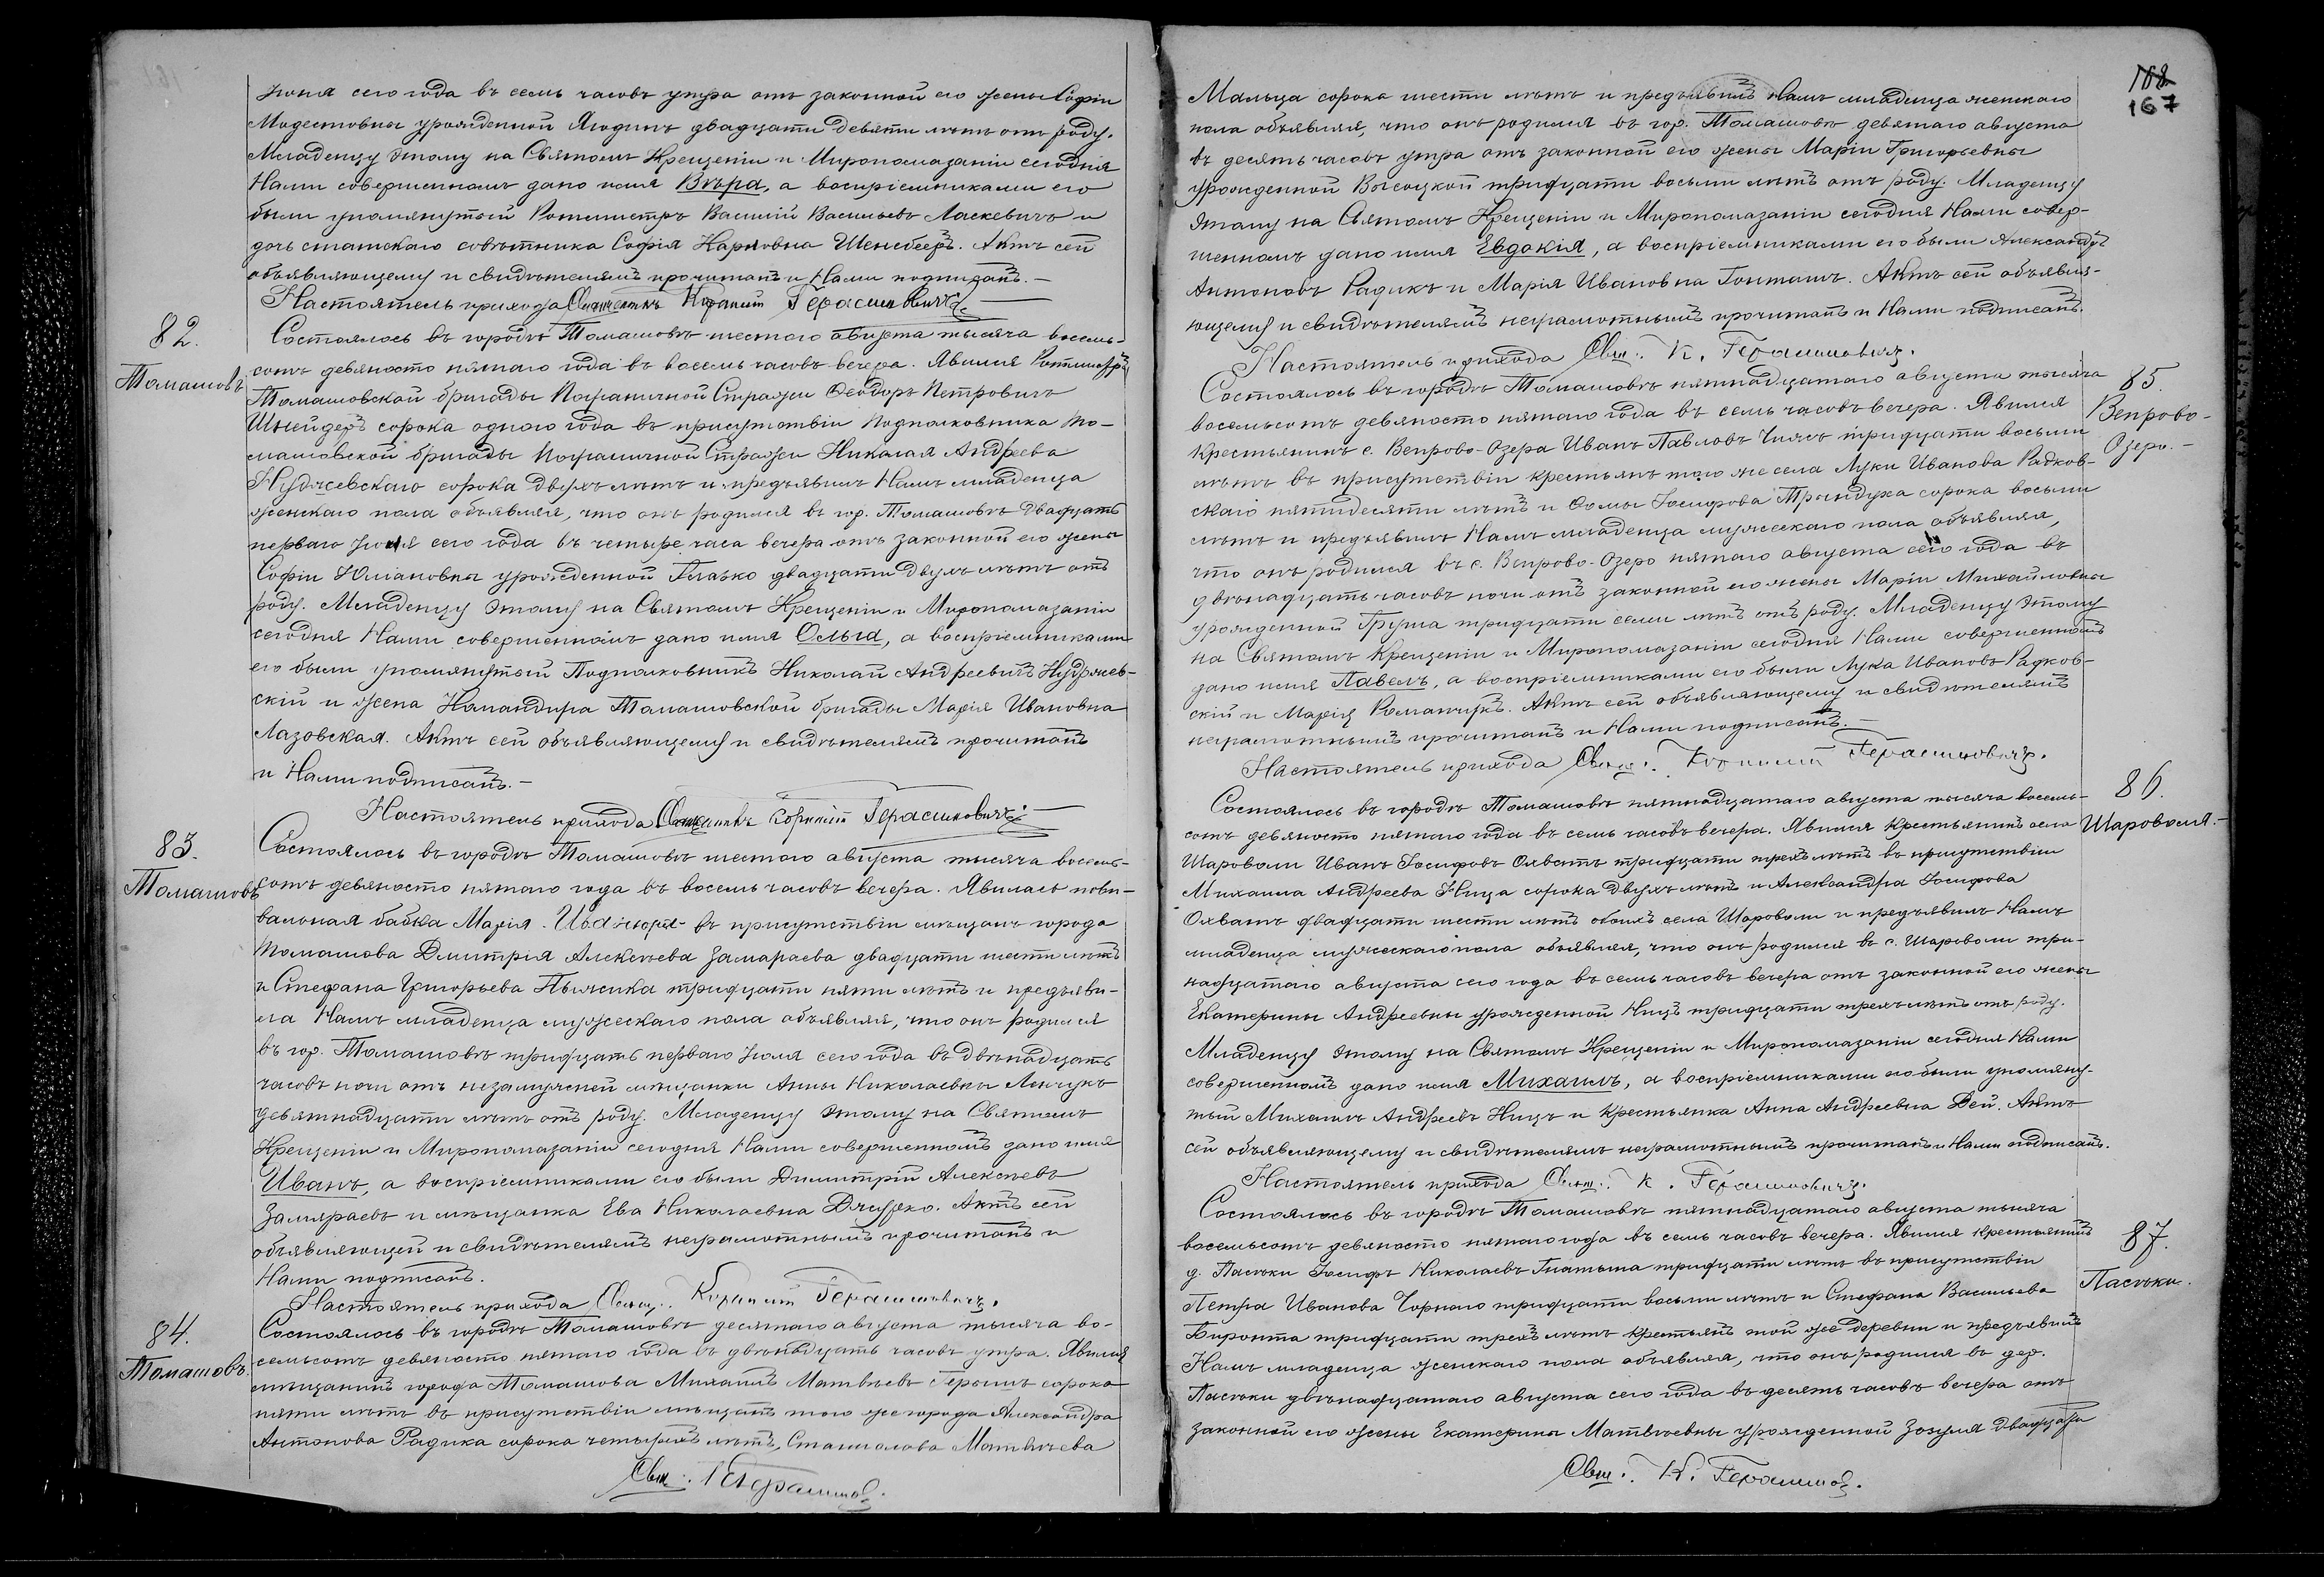 Іюня сего года въ семь часовъ утра отъ законной его жены Софіи
Модестовны урожденной Ягодинъ двадцати девяти лѣтъ отъ роду.
Младенцу этому на Святомъ Крещеніи и Миропомазаніи сегодня
Нами совершенномъ дано имя Вѣра, а воспріемниками его
были упомянутый Ротмистръ Василій Васильевъ Ласкевичъ и
дочь статскаго совѣтника Софія Карловна Шенсбееръ. Актъ сей
объявляющему и свидѣтелямъ прочитанъ и Нами подписанъ.-
Настоятель прихода Священникъ Корнилій Герасимовичъ
82.
Томашовъ
Состоялось въ городѣ Томашовѣ шестого августа тысяча восемь-
сотъ девяносто пятаго года въ восемь часовъ вечера. Явился Ротмистръ
Томашовской бригады Пограничной Стражи Ѳеодоръ Петровичъ
Шнейдеръ сорока одного года въ присутствіи Подполковника То-
машовской бригады Пограничной Стражи Николая Андреева
сорока двухъ лѣтъ и предъявилъ Намъ младенца
женскаго пола объявляя, что онъ родился въ гор. Томашовѣ двадцать
перваго Іюля сего года въ четыре часа вечера отъ законной его жены
Софіи Юліановны урожденной Глазко двадцати двухъ лѣтъ отъ
роду. Младенцу этому на Святомъ Крещеніи и Миропомазаніи
сегодня Нами совершенномъ дано имя Ольга, а воспріемниками
его были упомянутый Подполковникъ Николай Андреевичъ Кудржев-
скій и жена Командира Томашовской бригады Марія Ивановна
Лазовская. Актъ сей объявляющему и свидѣтелямъ прочитанъ
и Нами подписанъ.-
Настоятель прихода Священникъ Корнилій Герасимовичъ
83.
Томашовъ
Состоялось въ городѣ Томашовѣ шестого августа тысяча восемь-
сотъ девяносто пятаго года въ восемь часовъ вечера. Явилась пови-
вальная бабка Марія въ присутствіи мѣщанъ города
Томашова Дмитрія Алексѣева Замараева двадцати шести лѣтъ
и Стефана Григорьева Пыжика тридцати пяти лѣтъ и предъяви-
ла Намъ младенца мужескаго пола объявляя, что онъ родился
въ гор. Томашовѣ тридцать перваго Іюля сего года въ двѣнадцать
часовъ ночи отъ незамужней мѣщанки Анны Николаевны Ленчукъ
девятнадцати лѣтъ отъ роду. Младенцу этому на Святомъ
Крещеніи и Миропомазаніи сегодня Нами совершенномъ дано имя
Иванъ, а воспріемниками его были Димитрій Алексѣевъ
Замараевъ и мѣщанка Ева Николаевна Актъ сей
объявляющей и свидѣтелямъ неграмотнымъ прочитанъ и
Нами подписанъ.
Настоятель прихода Свящ. Корнилій Герасимовичъ.
84.
Томашовъ.
Состоялось въ городѣ Томашовѣ десятаго августа тысяча во-
семьсотъ девяносто пятаго года въ двѣнадцать часовъ утра. Явился
мѣщанинъ города Томашова Михаилъ Матвѣевъ сорока
пяти лѣтъ въ присутствіи мѣщанъ того же города Александра
Антонова Радика сорока четырехъ лѣтъ, Станислава Матвѣева
Свящ. К. Герасимов.
168
167
Мальца сорока шести лѣтъ и предъявилъ Намъ младенца женскаго
пола объявляя, что онъ родился въ гор. Томашовѣ девятаго августа
въ десять часовъ утра отъ законной его жены Маріи Григорьевны
урожденной Высоцкой тридцати восьми лѣтъ отъ роду. Младенцу
этому на Святомъ Крещеніи и Миропомазаніи сегодня Нами совер-
шенномъ дано имя Евдокія, а воспріемниками его были Александръ
Антоновъ Радикъ и Марія Ивановна Гонташъ. Актъ сей объявля-
ющему и свидѣтелямъ неграмотнымъ прочитанъ и Нами подписанъ.
Настоятель прихода Свящ. К. Герасимовичъ.
85.
Вепрово-
Озеро.-
Состоялось въ городѣ Томашовѣ пятнадцатаго августа тысяча
восемьсотъ девяносто пятаго года въ семь часовъ вечера. Явился
крестьянинъ с. Вепрово-Озера Иванъ Павловъ тридцати восьми
лѣтъ въ присутствіи крестьянъ того же села Луки Иванова Радков-
скаго пятидесяти лѣтъ и Ѳомы Іосифова Трындуха сорока восьми
лѣтъ и предъявилъ Намъ младенца мужескаго пола объявляя,
что онъ родился въ с. Вепрово-Озеро пятаго августа сего года въ
двѣнадцать часовъ ночи отъ законной его жены Маріи Михайловны
урожденной Груша тридцати семи лѣтъ отъ роду. Младенцу этому
на Святомъ Крещеніи и Миропомазаніи сегодня Нами совершенномъ
дано имя Павелъ, а воспріемниками его были Лука Ивановъ Радков-
скій и Марія Романчукъ. Актъ сей объявляющему и свидѣтелямъ
неграмотнымъ прочитанъ и Нами подписанъ.-
Настоятель прихода Свящ. Корнилій Герасимовичъ.
86.
Шароволя.-
Состоялось въ городѣ Томашовѣ пятнадцатаго августа тысяча восемь-
сотъ девяносто пятаго года въ семь часовъ вечера. Явился крестьянинъ села
Шароволи Иванъ Іосифовъ Охватъ тридцати трехъ лѣтъ въ присутствіи
Михаила Андреева Кица сорока двухъ лѣтъ и Александра Іосифова
Охватъ двадцати шести лѣтъ обоихъ села Шароволи и предъявилъ Намъ
младенца мужескаго пола объявляя, что онъ родился въ с. Шароволи три-
надцатаго августа сего года въ семь часовъ вечера отъ законной его жены
Екатерины Андреевны урожденной Кицъ тридцати трехъ лѣтъ отъ роду.
Младенцу этому на Святомъ Крещеніи и Миропомазаніи сегодня Нами
совершенномъ дано имя Михаилъ, а воспріемниками его были упомяну-
тый Михаилъ Андреевъ Кицъ и крестьянка Анна Андреевна Дей. Актъ
сей объявляющему и свидѣтелямъ неграмотнымъ прочитанъ и Нами подписанъ.
Настоятель прихода Свящ. К. Герасимовичъ.
87.
Пасѣки.
Состоялось въ городѣ Томашовѣ пятнадцатаго августа тысяча
восемьсотъ девяносто пятаго года въ семь часовъ вечера. Явился крестьянинъ
д. Пасѣки Іосифъ Николаевъ Гнатына тридцати лѣтъ въ присутствіи
Петра Иванова Чорнаго тридцати восьми лѣтъ и Стефана Васильева
Биронта тридцати трехъ лѣтъ крестьянъ той же деревни и предъявилъ
Намъ младенца женскаго пола объявляя, что онъ родился въ дер.
Пасѣки двѣнадцатаго августа сего года въ десять часовъ вечера отъ
законной его жены Екатерины Матвѣевны урожденной Зозуля двадцати
Свящ. К. Герасимов.